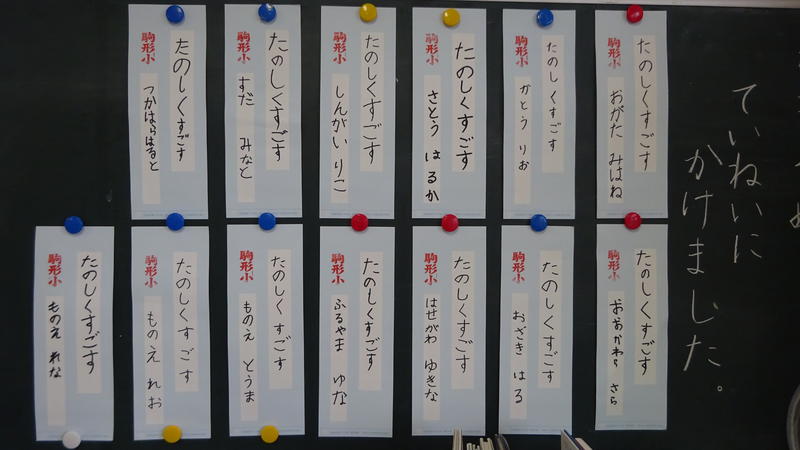 ていねいに
かけました。
たのしくすごす
駒形小 おがた みはね
たのしくすごす
駒形小 かとう りお
たのしくすごす
駒形小 さとう はるか
たのしくすごす
駒形小 しんがい りこ
たのしくすごす
駒形小 すだ みなと
たのしくすごす
駒形小 つかはらはると
たのしくすごす
駒形小 おおかわら さら
たのしくすごす
おざき はる
たのしくすごす
駒形小 はせがわ ゆきな
たのしくすごす
駒形小 ふるやま ゆな
たのしくすごす
駒形小 ものえ とうま
たのしくすごす
駒形小 ものえ れお
たのしくすごす
駒形小 ものえ れな